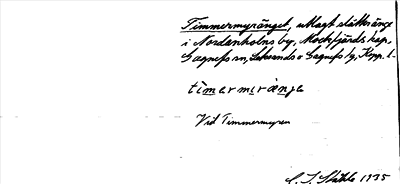 Timmermyränget, utlagt slåtteränge
i Nordanholns by, Mockfjärds kap,
Gagnefs sn, Leksands o Gagnefs tg, Kopp. l.
timermıränje
Vid Timmermyren
C. I. Ståhle 1935